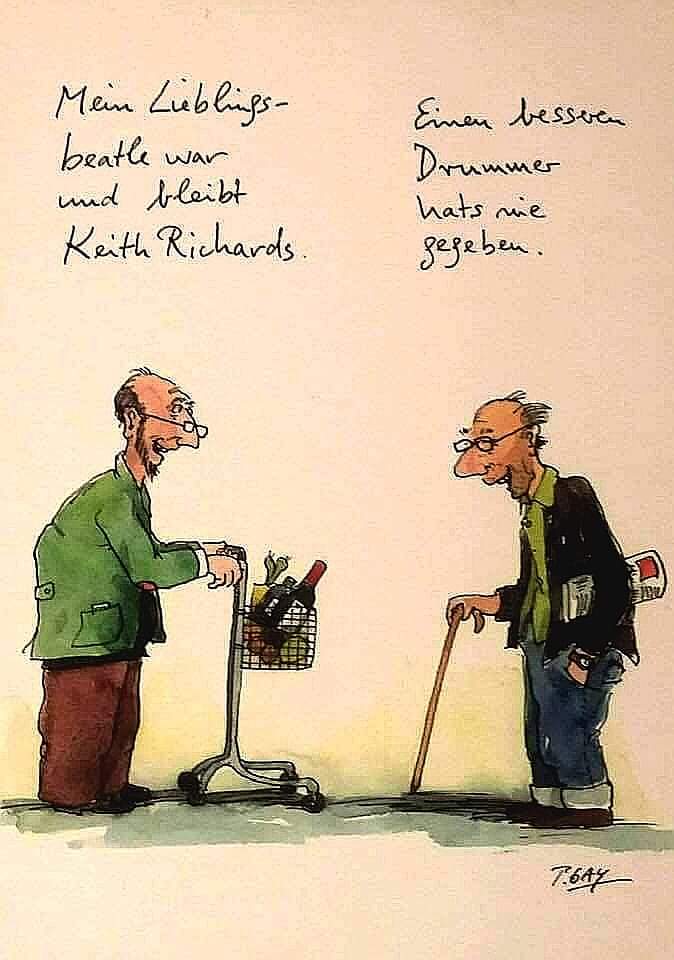 Mein Lieblings-
beatle war
und bleibt
Keith Richards.
Einen besseren
Drummer
hats nie
gegeben.
P. GAY